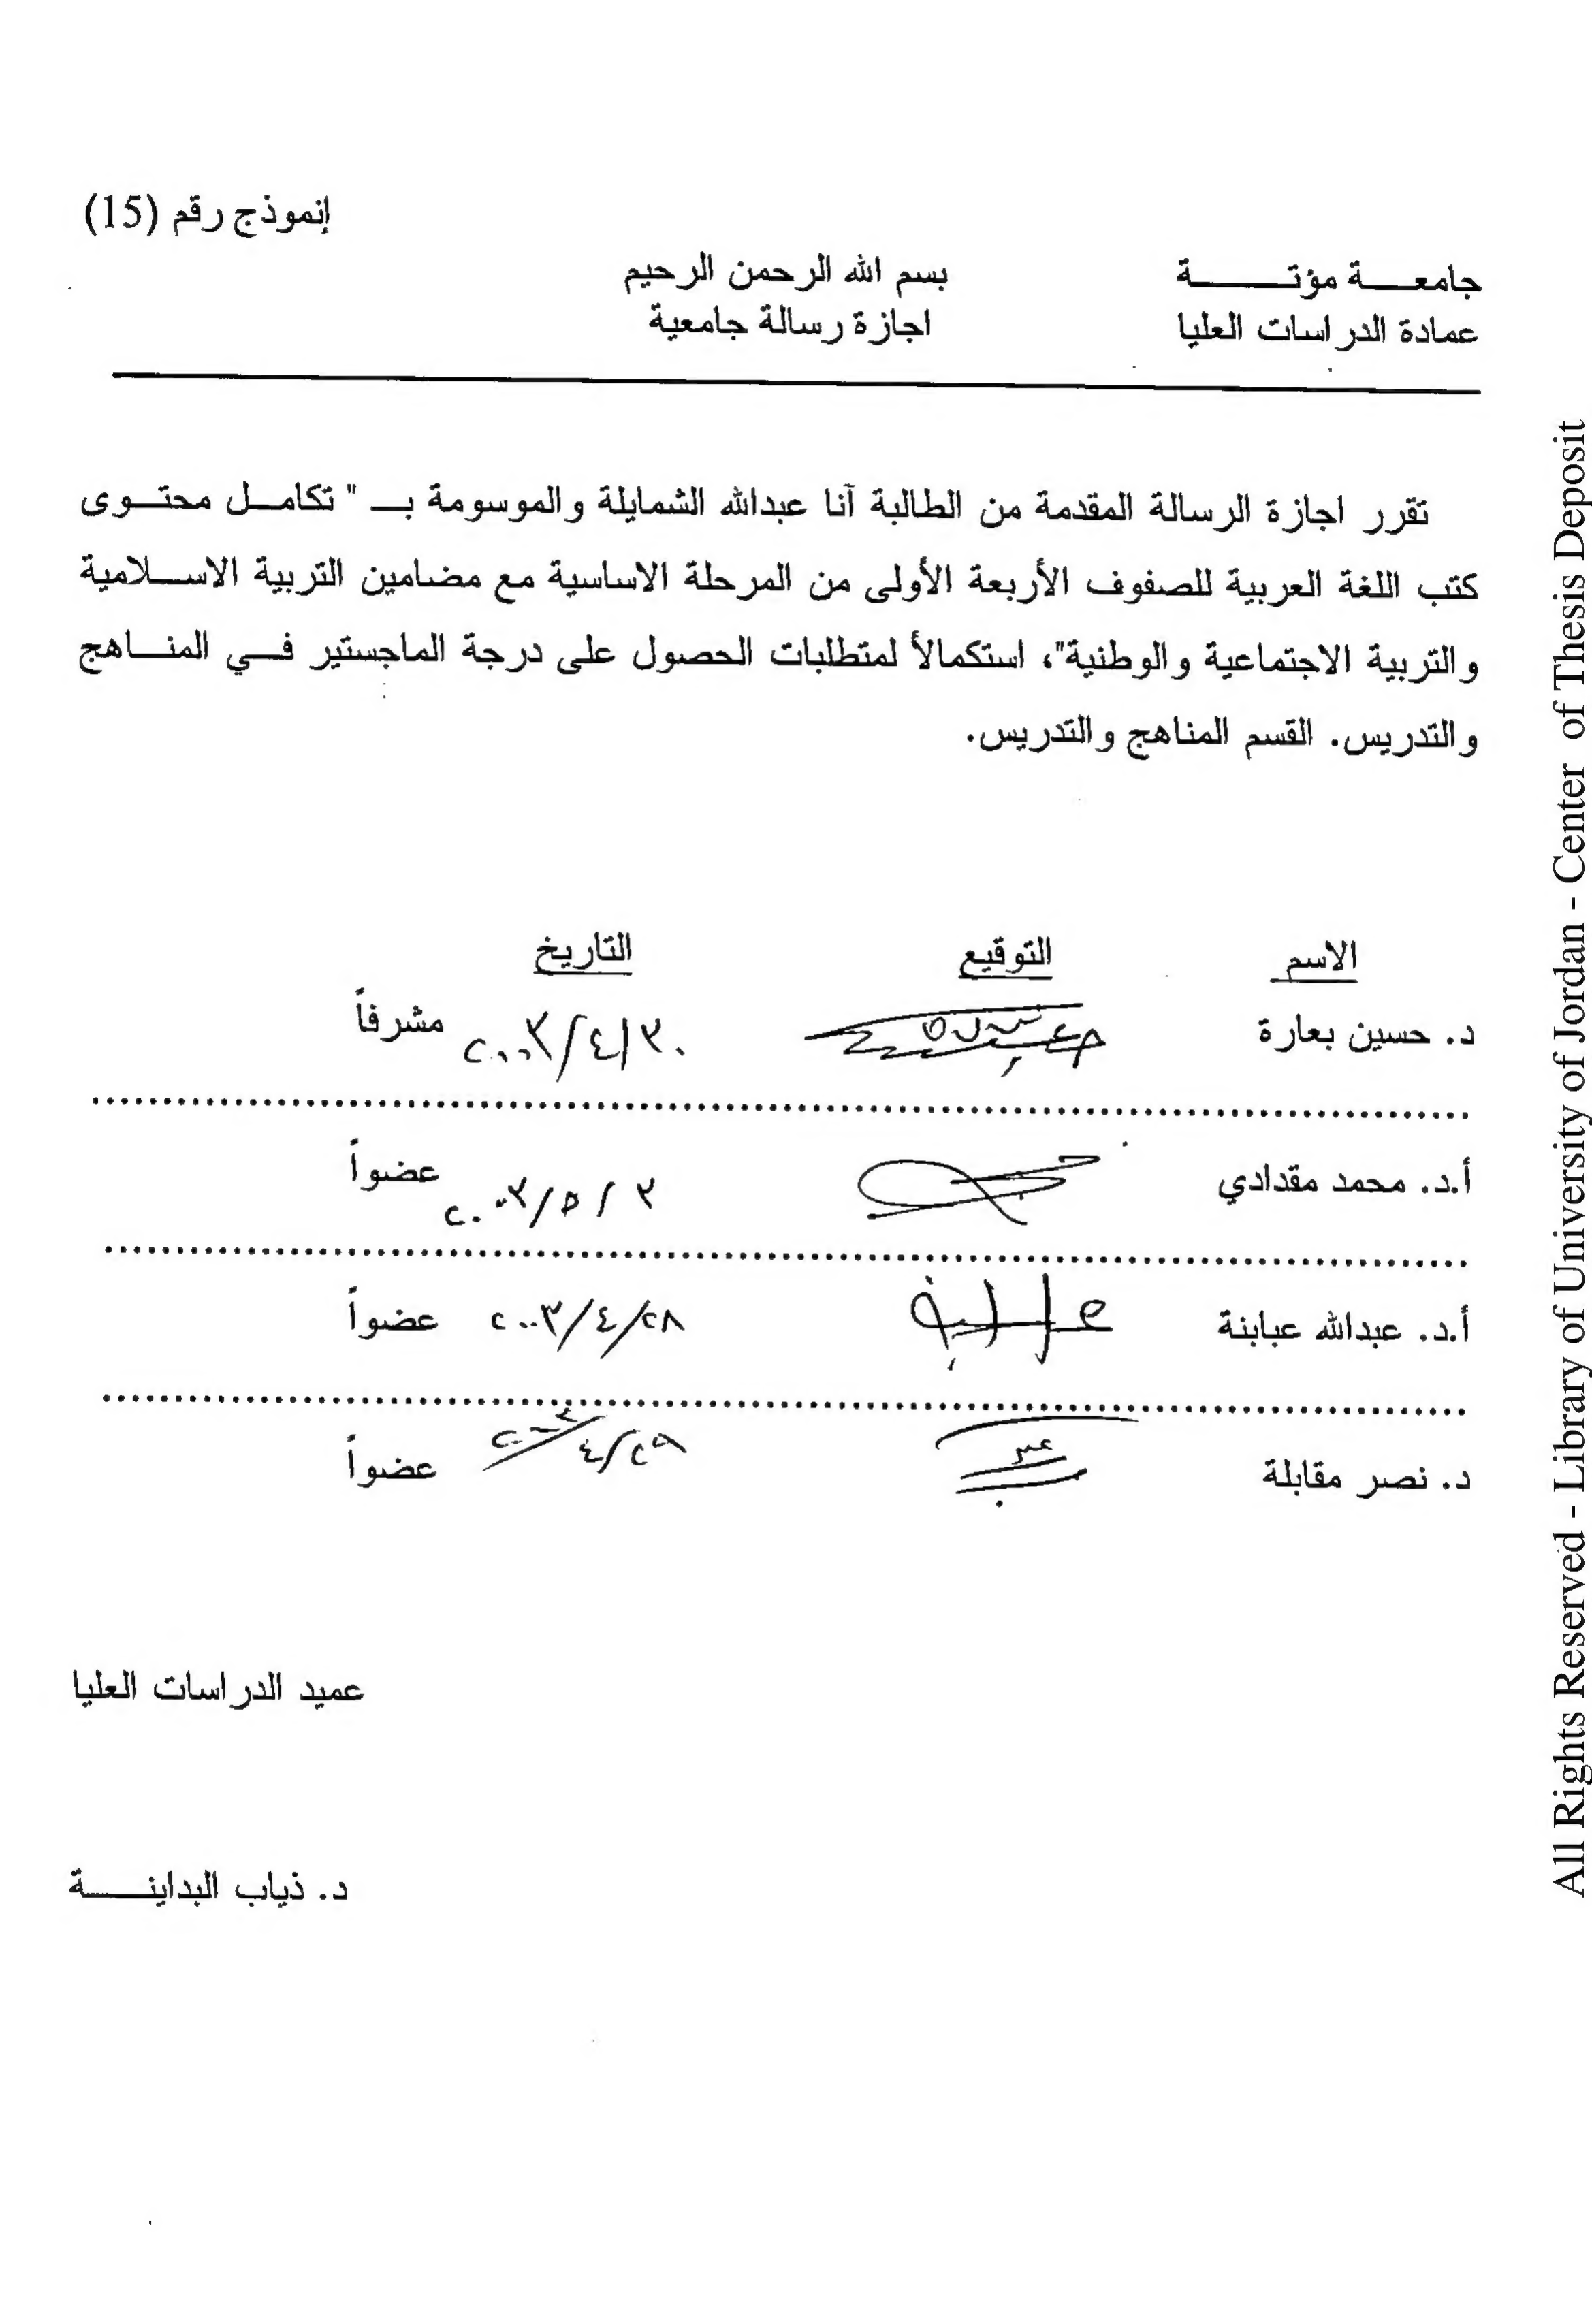 إنموذج رقم (15)
جامعة مؤتة
بسم الله الرحمن الرحيم
عمادة الدراسات العليا
اجازة رسالة جامعية
تقرر اجازة الرسالة المقدمة من الطالبة آنا عبدالله الشمايلة والموسومة بـ " تكامل محتوى
كتب اللغة العربية للصفوف الأربعة الأولى من المرحلة الاساسية مع مضامين التربية الاسلامية
والتربية الاجتماعية والوطنية"، استكمالاً لمتطلبات الحصول على درجة الماجستير في المناهج
والتدريس. القسم المناهج والتدريس.
الاسم التوقيع التاريخ
د. حسين بعارة ٢٠٠٣/٤/٣٠ مشرفاً
أ.د. محمد مقدادي ٢٠٠٣/٥/٣ عضواً
أ.د. عبدالله عبابنة ٢٠٠٣/٤/٢٨ عضواً
د. نصر مقابلة ٢٠٠٣/٤/٢٩ عضواً
عميد الدراسات العليا
د. ذياب البداينة
All Rights Reserved - Library of University of Jordan - Center of Thesis Deposit